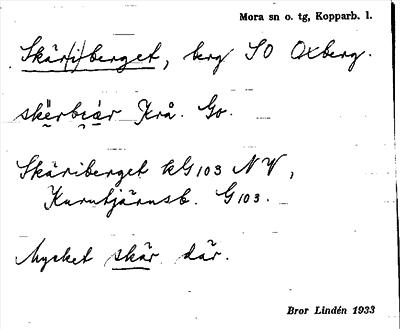 Mora sn o. tg, Kopparb. l.
Skär(i)berget, berg SO Oxberg.
skärbɛ̣ar Krå. Go.
Skäriberget kG103 NV,
Kurntjärnsb. G103.
Mycket skär där.
Bror Lindén 1933